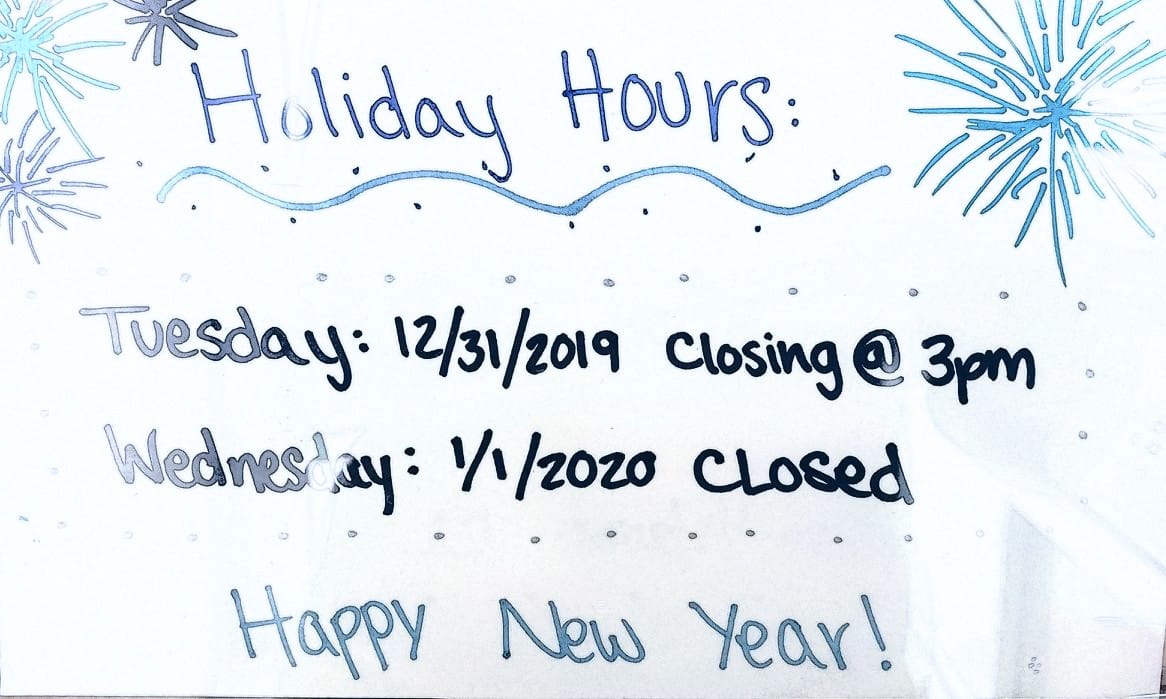 Holiday Hours:
Tuesday: 12/31/2019 Closing @ 3pm
Wednesday: 1/1/2020 CLosed
Happy New Year!